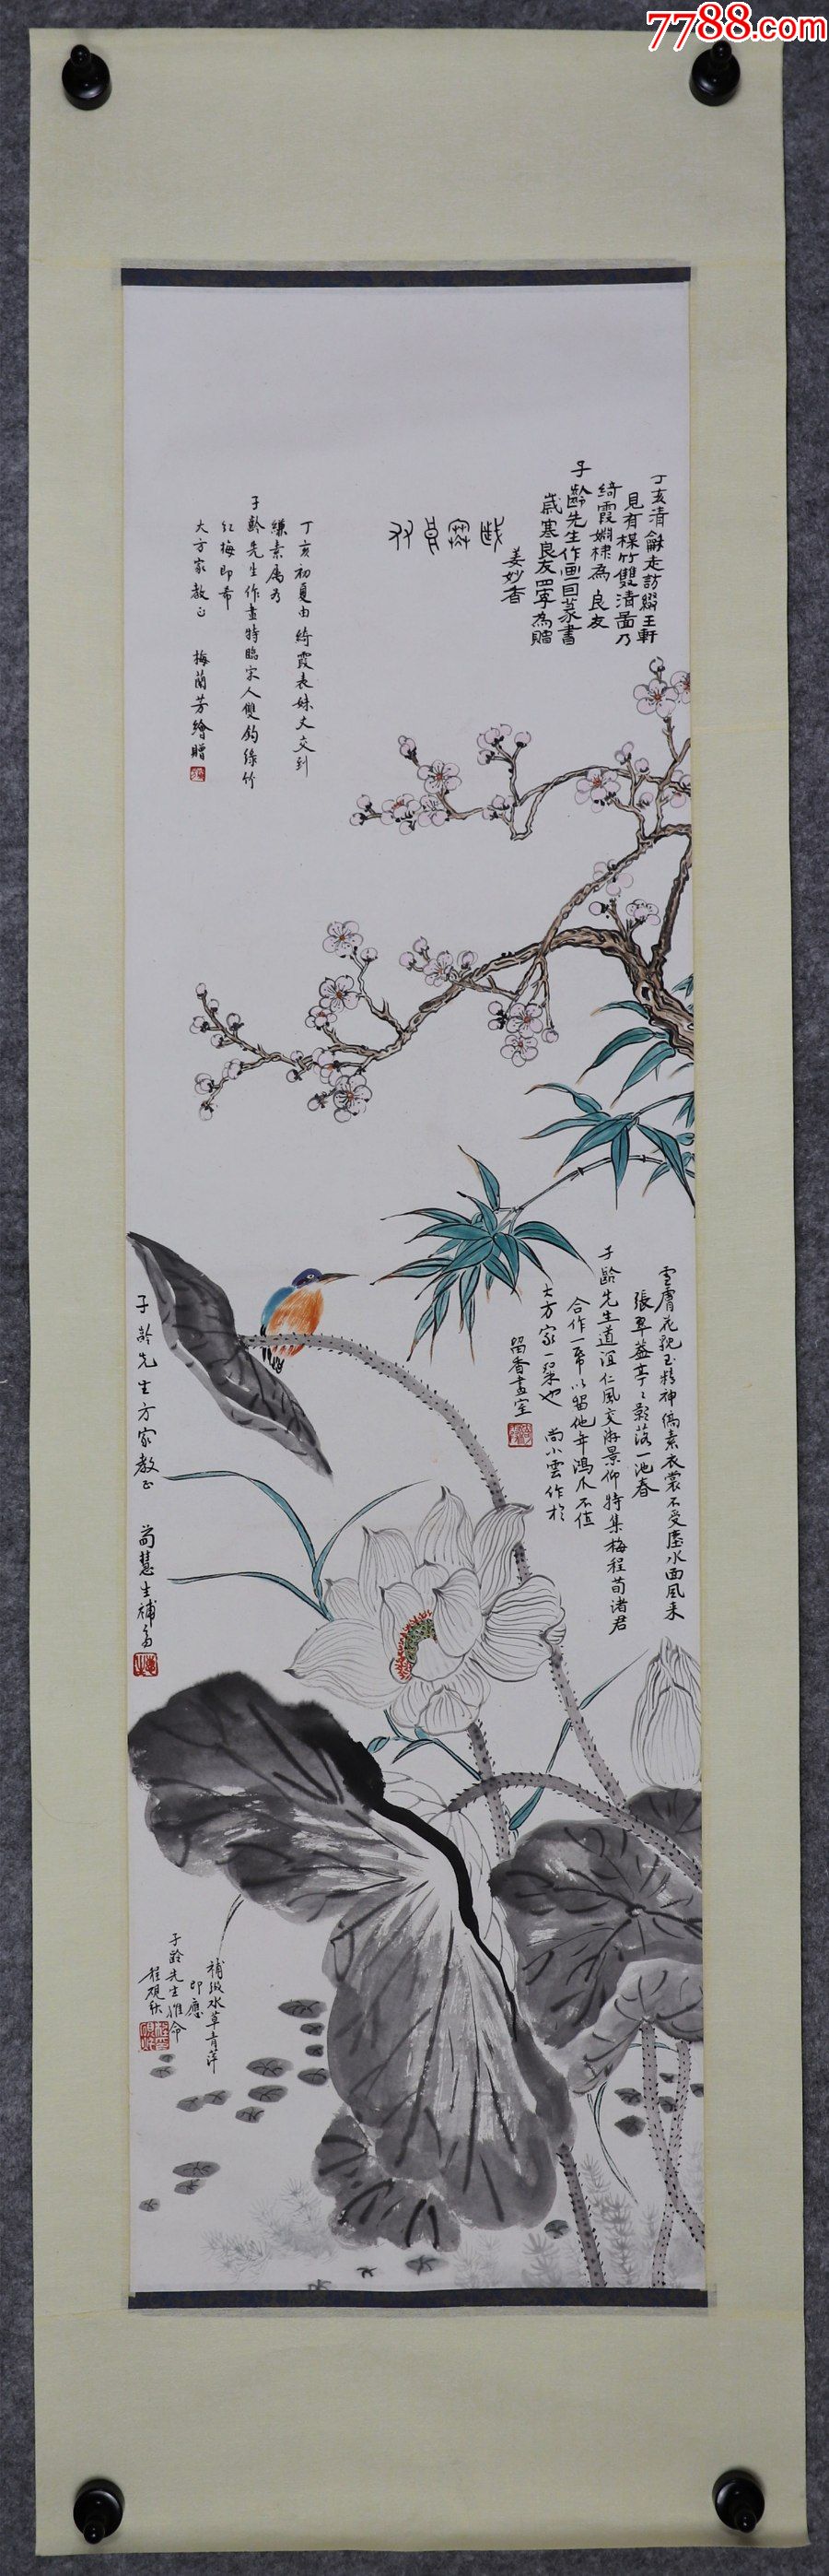 7788.com
丁亥清龢走訪綴玉軒
見有楳竹雙清啚乃
綺霞嫺棣為良友
子齡先生作画囙篆書
歲寒良友四字為贈
姜妙香
歲寒良友
丁亥初夏由綺霞表妹丈交到
縑素属為
子齡先生作畫特臨宋人雙鈎綠竹
紅梅即希
大方家教正
梅蘭芳繪贈
雪膚花貌玉精神縞素衣裳不受塵水面風来
張翠蓋亭亭影落一池春
子齡先生道誼仁風交游景仰特集梅程荀诸君
合作一帋以留他年鴻爪不值
大方家一粲也 尚小雲作於
留香畫室
子齡先生方家教正 荀慧生補禽
補綴水草青萍
即應
子齡先生雅命
程硯秋